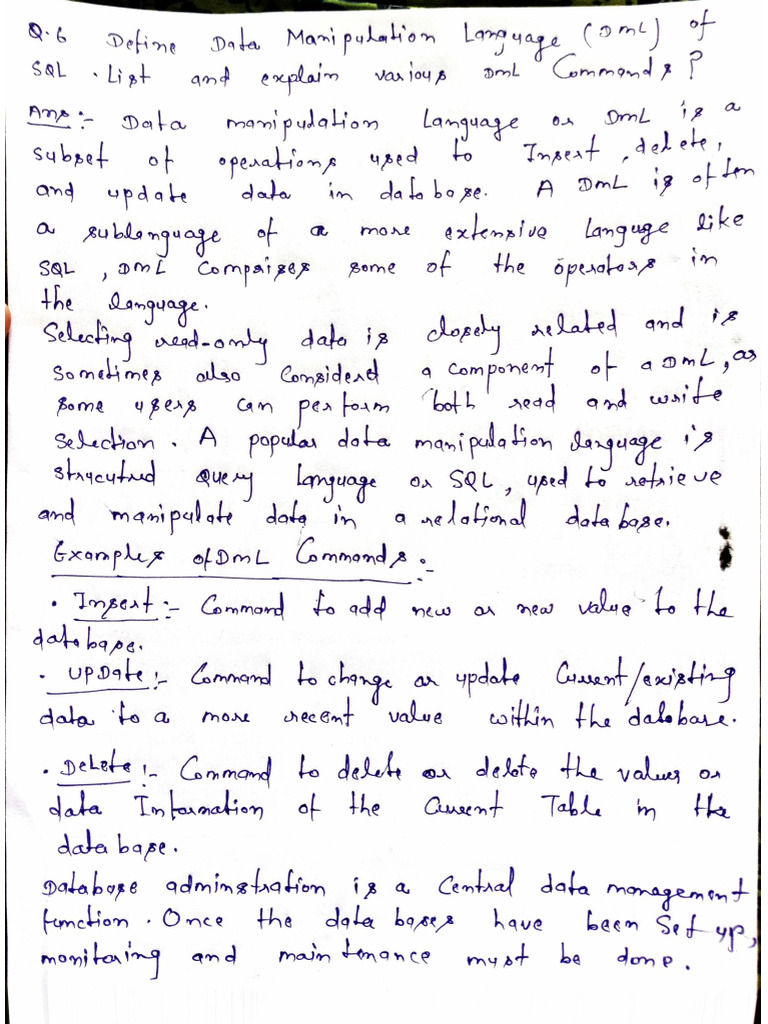 Q.6 Define Data Manipulation Language (DML) of
SQL . List and explain various DML Commands?
Ans:- Data manipulation Language or DML is a
subset of operations used to Insert, delete,
and update data in database. A DML is often
a sublenguage of a more extensive Languge like
SQL, DML Comprises some of the operators in
the language.
Selecting read-only data is closely related and is
sometimes also Considerd a component of a DML, as
some users can perform both read and write
selection. A popular data manipulation language is
strycutred query Language or SQL, used to retrieve
and manipulate data in a relational database.
Examples of DML Commands:-
• Insert:- Command to add new or new value to the
database.
• UPDate:- Command to change or update Current/existing
data to a more recent value within the database.
• Delete:- Command to delete or delete the values or
data Information of the Current Table in the
database.
Database adminstration is a Central data management
function. Once the data bases have been Set up,
monitoring and maintenance must be done.